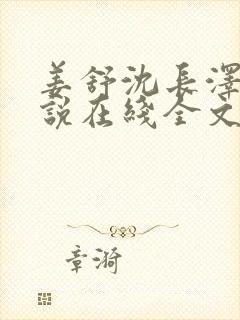 姜舒沈長澤
說在綫全文
章漪